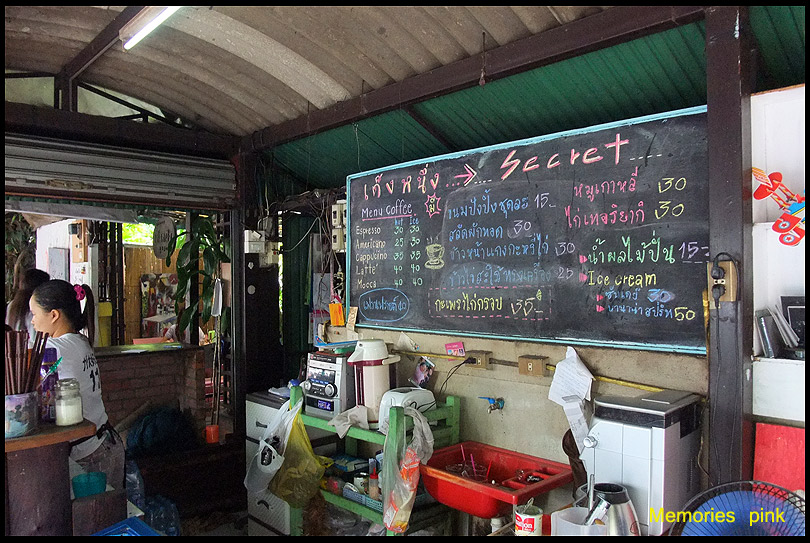 เก็งหนึ่ง ...→... Secret....
Menu Coffee
Hot Ice
Espresso 30 30
Americano 25 30
Cappucino 35 35
Latte' 40 40
Mocca 40 40
ขนมปังปิ้งชุดละ 15.-
สลัดผักทอด 30
ข้าวหน้าแกงกะหรี่ไก่ 30
25
กะเพราไก่กรอบ 35.-
หมูเกาหลี 30
ไก่เทอริยากิ 30
น้ำผลไม้ปั่น 15.-
Ice cream
ซันเดย์
บานาน่าสปริท 50
Memories pink